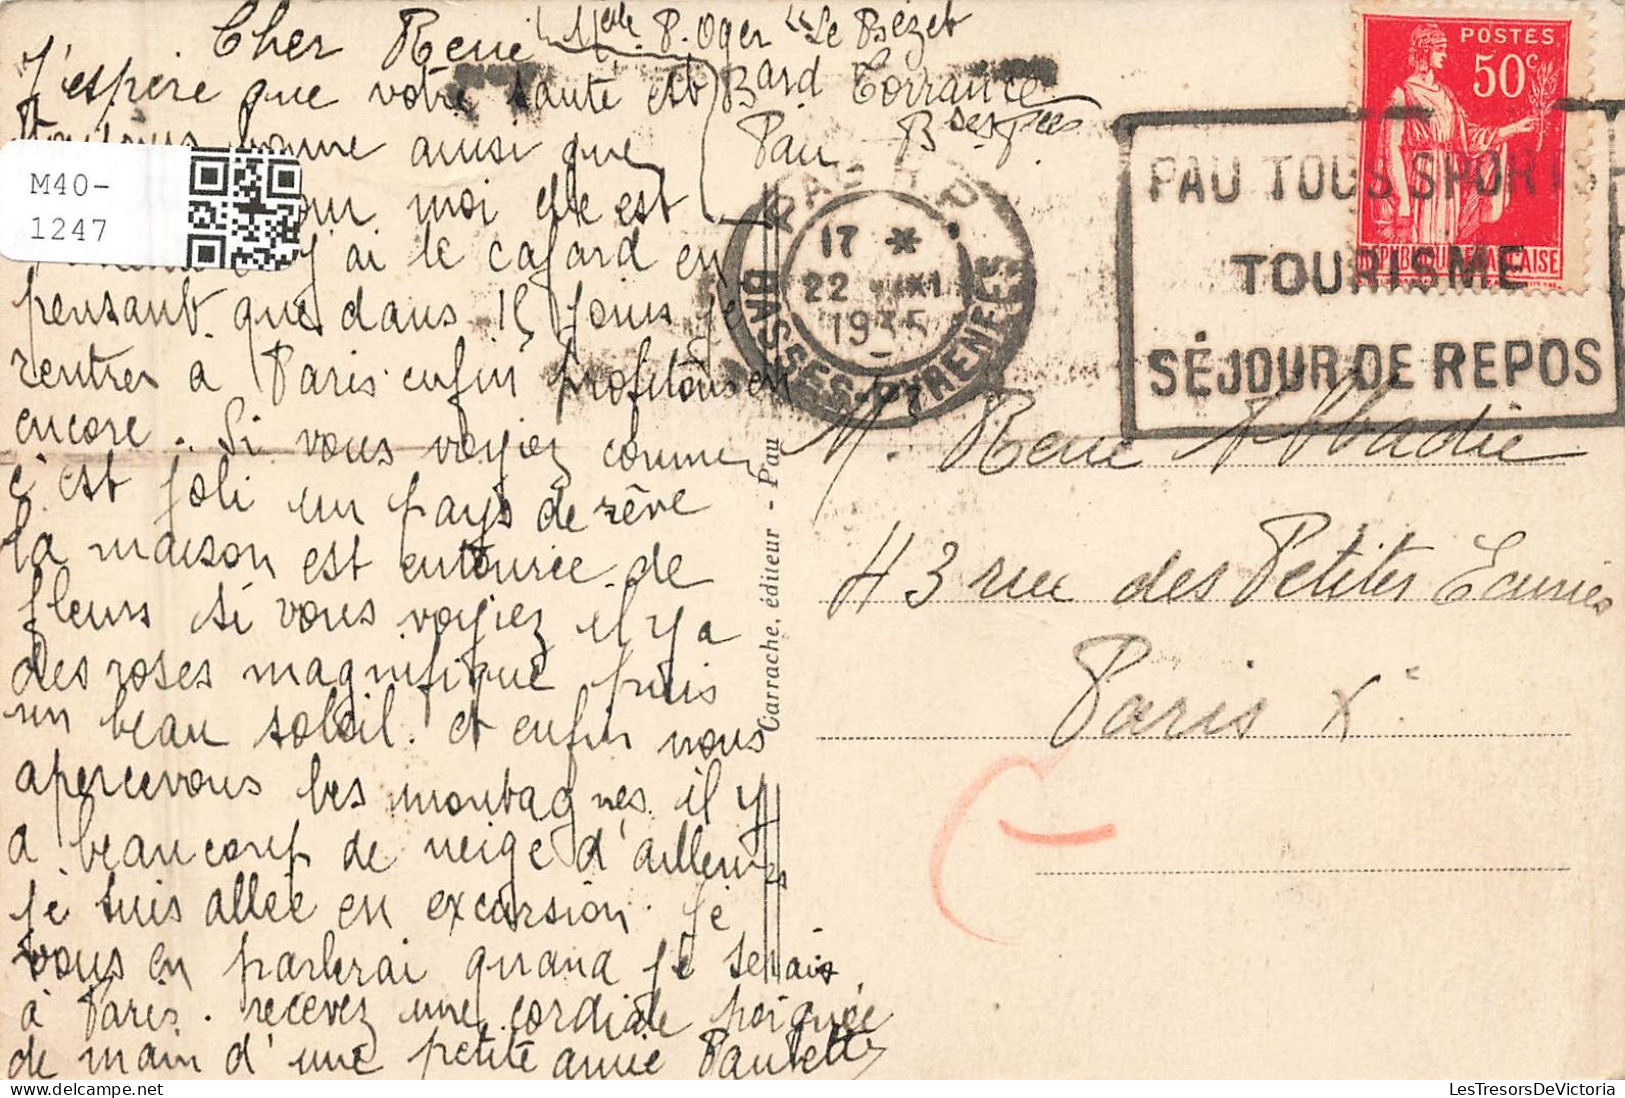 Cher Rene
Melle P. Oger "Le Bézet
Bard Torrance
Pau Bses Pées
J'espère que votre santé est
toujours bonne ainsi que
pour moi elle est
j'ai le cafard en
pensant que dans 15 jours je
rentrer à Paris enfin profitons en
encore. Si vous voyiez comme
c'est joli un pays de rêve
la maison est entourée de
fleurs si vous voyiez il y a
des roses magnifique puis
un beau soleil. et enfin nous
apercevous les montagnes. il y
a beaucoup de neige d'ailleurs
je suis allée en excursion. je
vous en parlerai quand je serais
à Paris. recevez une cordiale poignée
de main d'une petite amie Paulette
M40-
1247
Carrache, éditeur - Pau
POSTES
50c
REPUBLIQUE FRANÇAISE
PAU R.P.
17 *
22
1935
BASSES-PYRENEES
PAU TOUS SPORTS
TOURISME
SÉJOUR DE REPOS
Mr. Rene Abbadie
43 rue des Petites Ecuries
Paris Xe
LesTresorsDeVictoria